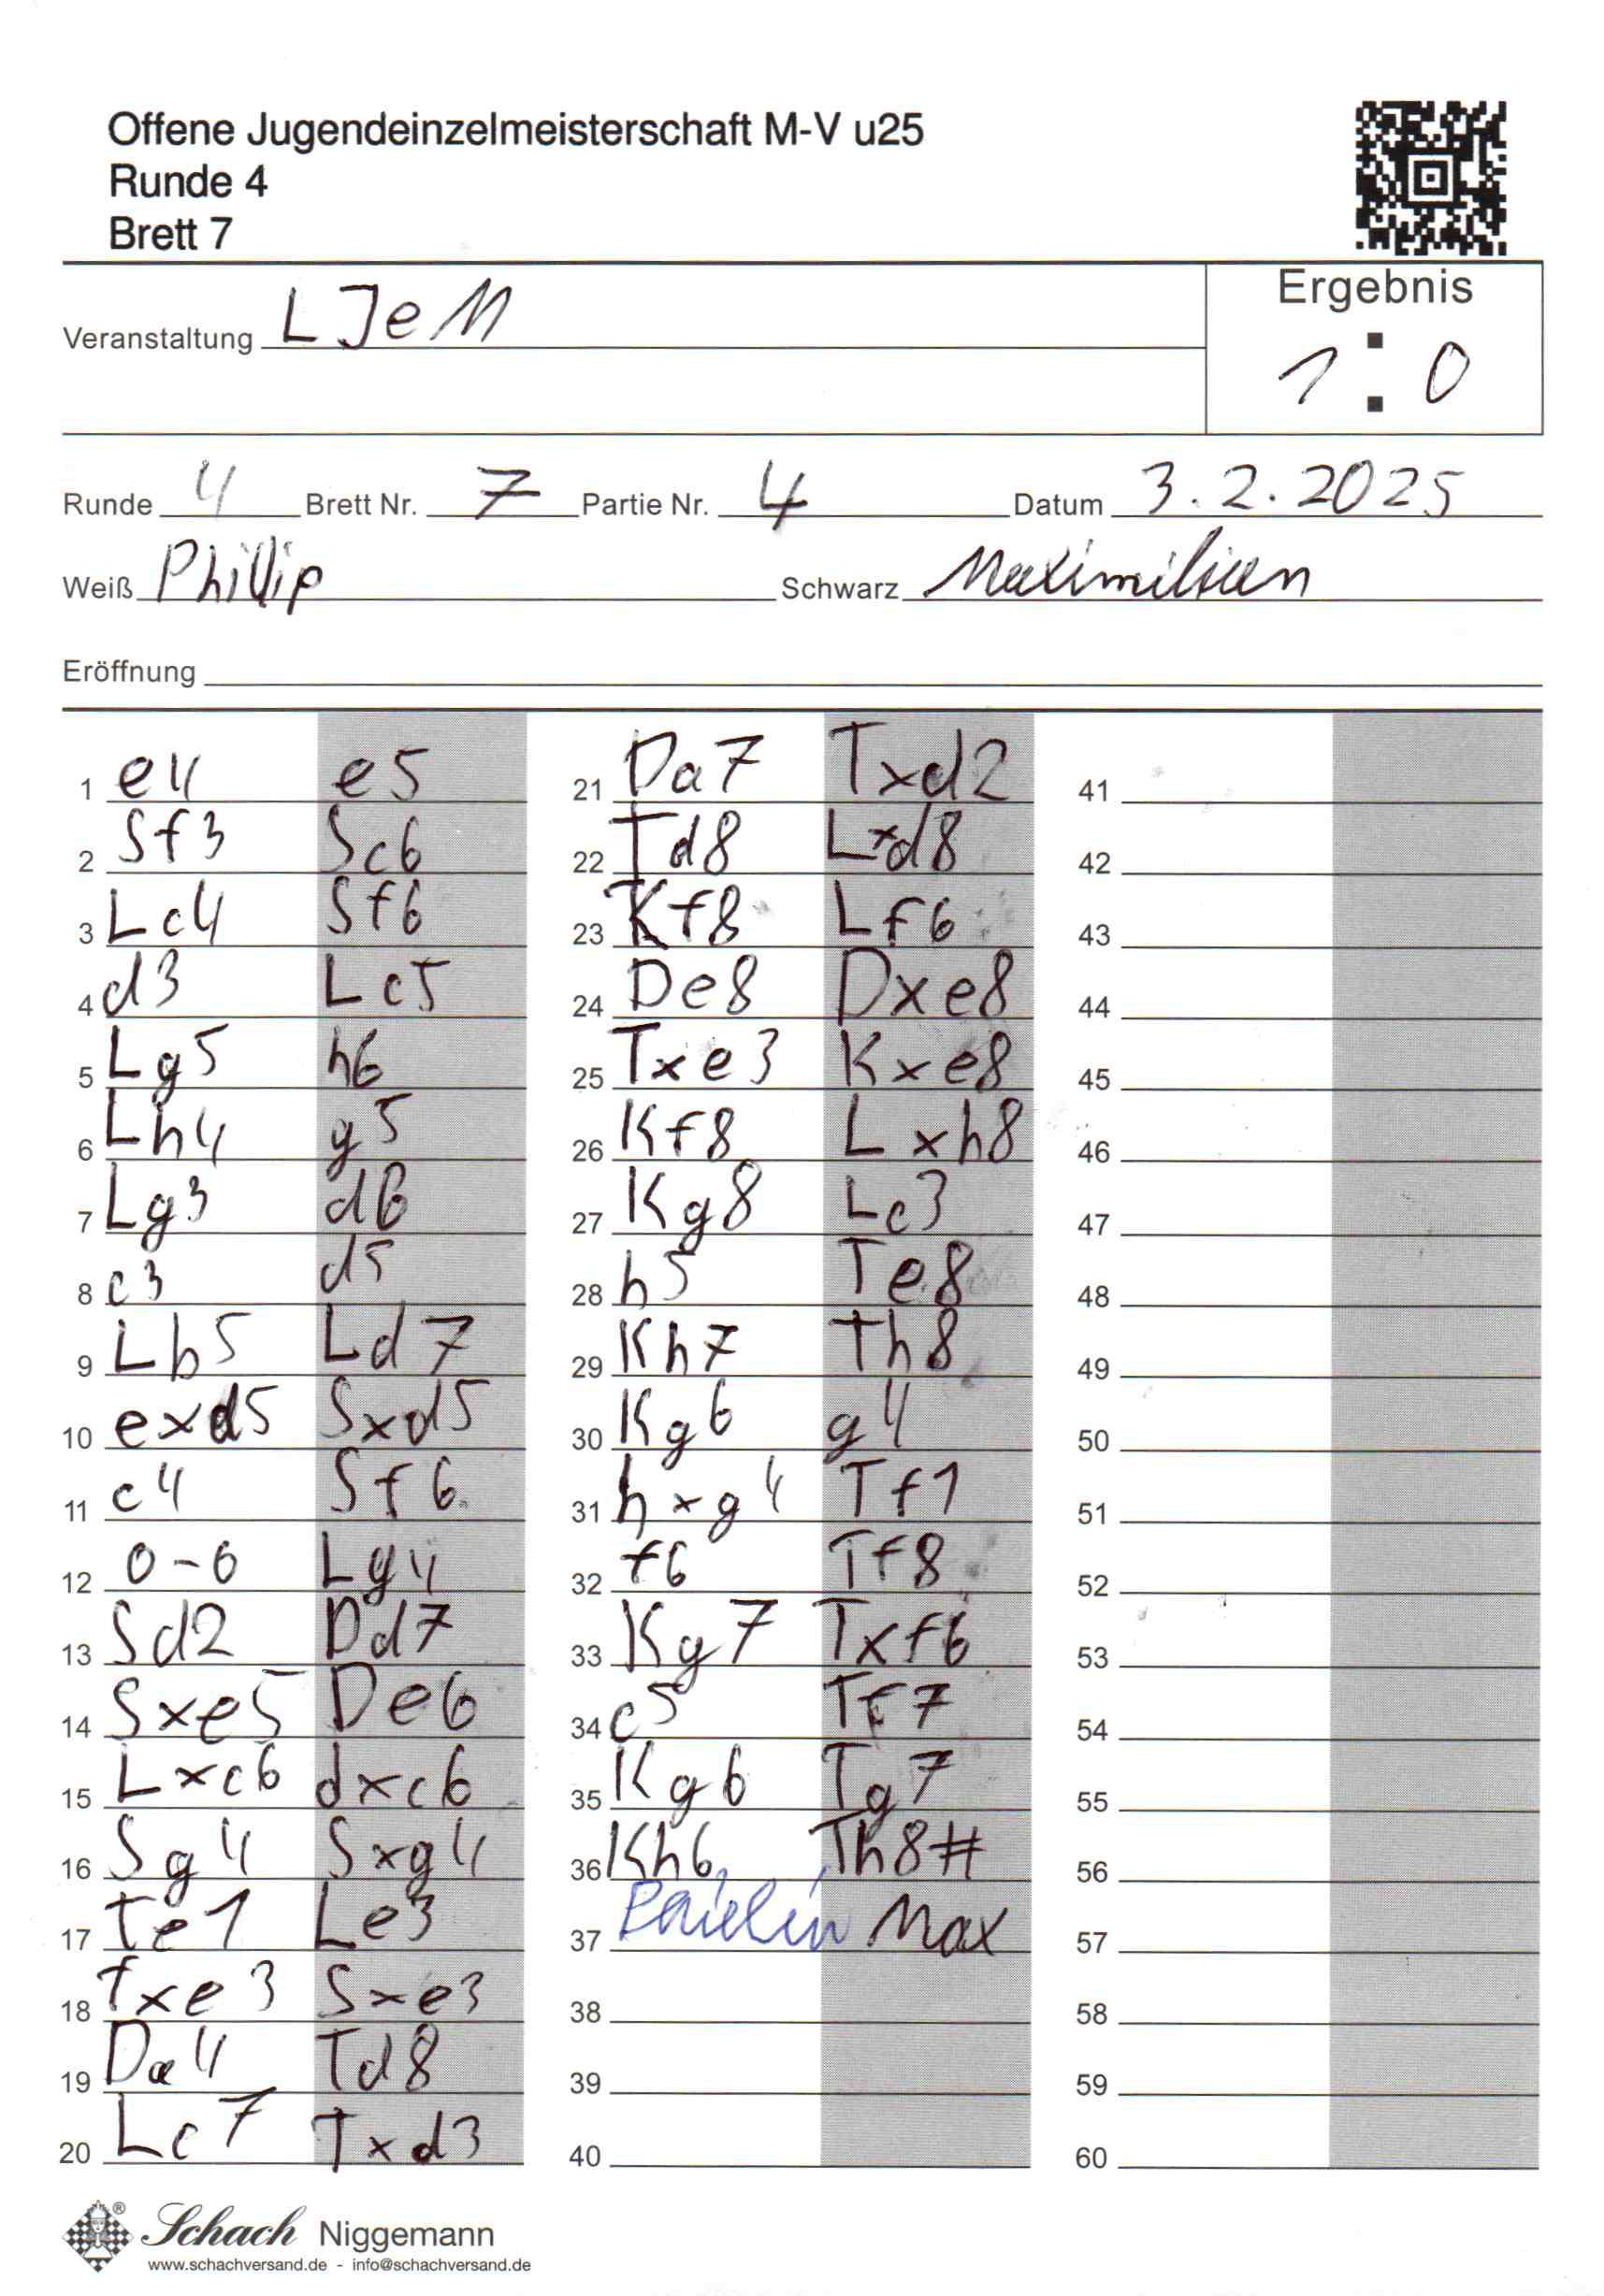 Offene Jugendeinzelmeisterschaft M-V u25
Runde 4
Brett 7
Veranstaltung LJeM
Ergebnis
1 : 0
Runde 4 Brett Nr. 7 Partie Nr. 4 Datum 3.2.2025
Weiß Phillip Schwarz Maximilian
Eröffnung
1 e4 e5
2 Sf3 Sc6
3 Lc4 Sf6
4 d3 Lc5
5 Lg5 h6
6 Lh4 g5
7 Lg3 d6
8 c3 d5
9 Lb5 Ld7
10 exd5 Sxd5
11 c4 Sf6
12 0-0 Lg4
13 Sd2 Dd7
14 Sxe5 De6
15 Lxc6 dxc6
16 Sg4 Sxg4
17 Te1 Le3
18 Txe3 Sxe3
19 Da4 Td8
20 Lc7 Txd3
21 Da7 Txd2
22 Td8 Lxd8
23 Kf8 Lf6
24 De8 Dxe8
25 Txe3 Kxe8
26 Kf8 Lxh8
27 Kg8 Lc3
28 h5 Te8
29 Kh7 Th8
30 Kg6 g4
31 hxg4 Tf1
32 f6 Tf8
33 Kg7 Txf6
34 c5 Tf7
35 Kg6 Tg7
36 Kh6 Th8#
37 Max
38
39
40
41
42
43
44
45
46
47
48
49
50
51
52
53
54
55
56
57
58
59
60
Schach Niggemann
www.schachversand.de - info@schachversand.de